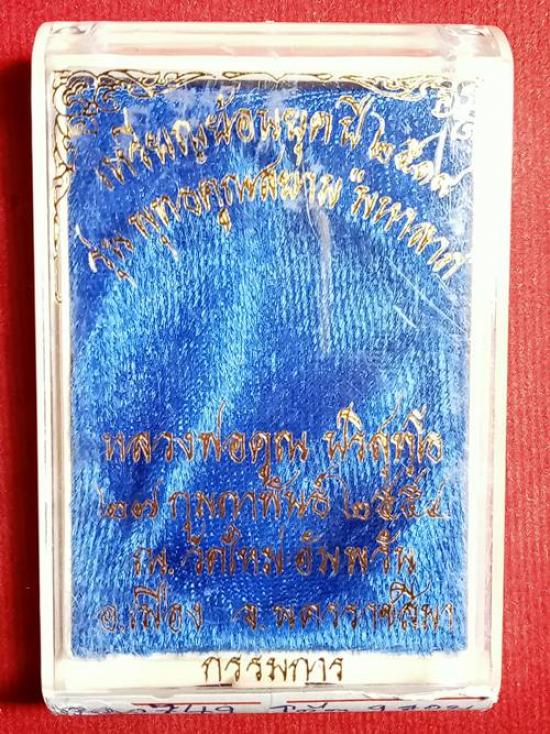 เหรียญย้อนยุคปี ๒๕๑๗
รุ่น พุทธคูณสยาม มหาลาภ
หลวงพ่อคูณ ปริสุทฺโธ
๒๗ กุมภาพันธ์ ๒๕๕๔
ณ. วัดใหม่อัมพวัน
อ.เมือง จ.นครราชสีมา
กรรมการ